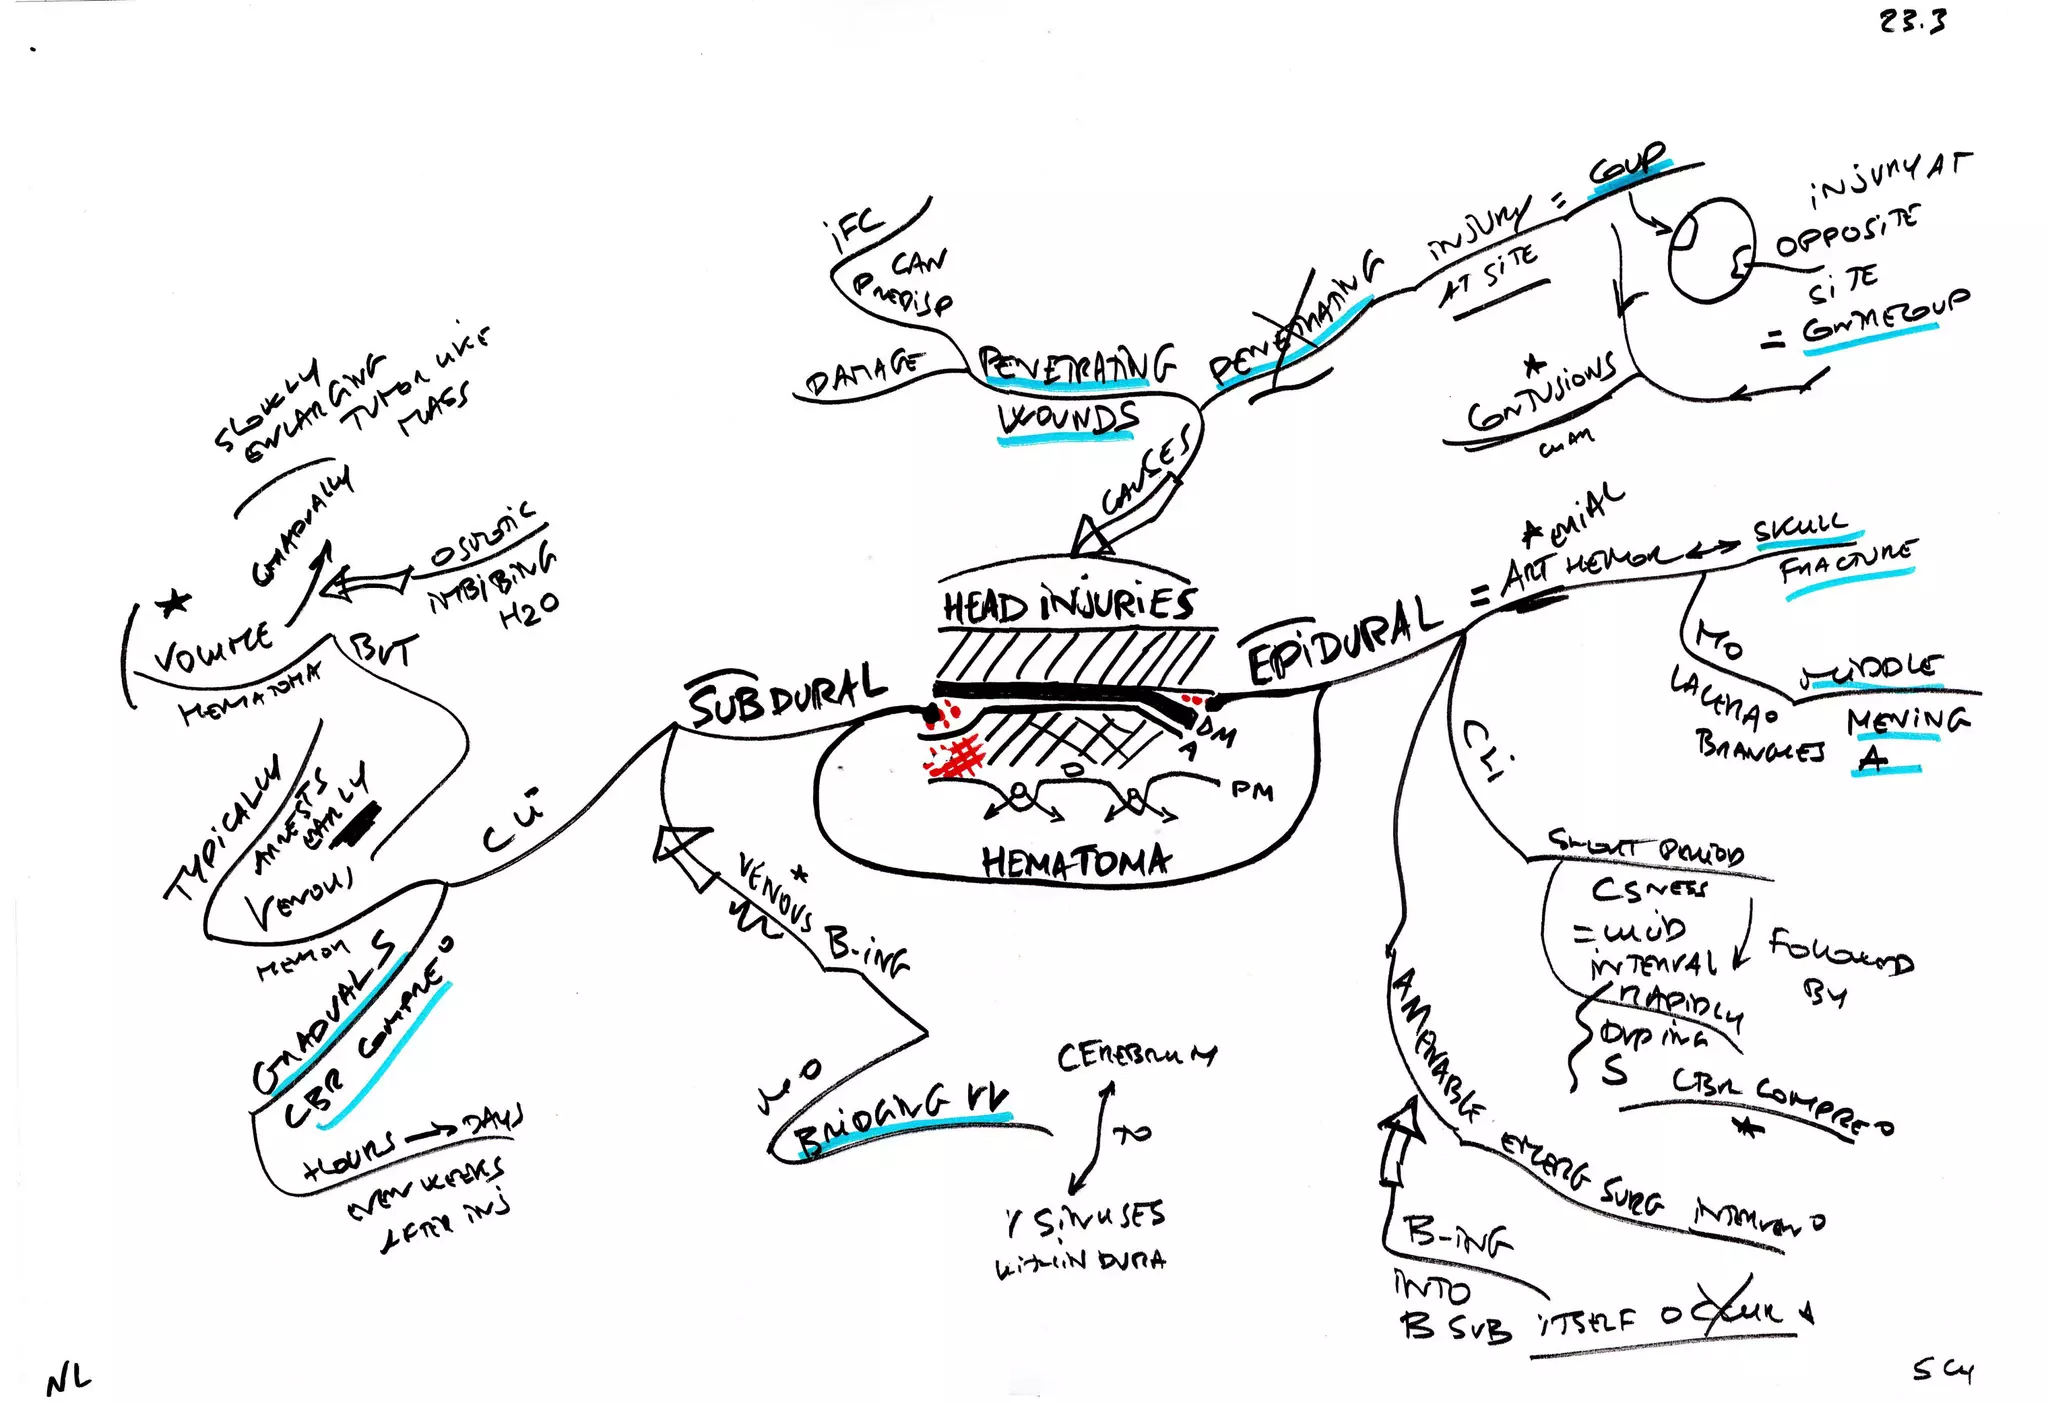 23.3
COUP
INJURY AT
OPPOSITE
SITE
= CONTRECOUP
INJURY =
AT SITE
PENETRATING
IFC
CAN
PREDISP
DAMAGE
PENETRATING
WOUNDS
CAUSES
* CONTUSIONS
SLOWLY
ENLARGING
TUMOR LIKE
MASS
GRADUALLY
OSMOTIC
IMBIBING
H2O
* VOLUME
HEMATOMA
BUT
TYPICALLY
ARRESTS
EARLY
VENOUS
HEMORR
GRADUAL S
CBR COMPRE°
HOURS → DAYS
EVEN WEEKS
AFTER INJ
CLI
SUBDURAL
HEAD INJURIES
DM
A
PM
HEMATOMA
VENOUS *
B-ING
BRIDGING VV
CEREBRUM
TO
V SINUSES
WITHIN DURA
EPIDURAL
= ART HEMOR ↔ SKULL
FRACTURE
MO
LACERA°
BRANCHES
MIDDLE
MENING
A
CLI
SHORT PERIOD
CSNESS
= LUCID
INTERVAL
FOLLOWED
BY
RAPIDLY
DVPING
S
CBR COMPRE°
*
AMENABLE EMERG SURG INTERVEN°
B-ING
INTO
B SUB ITSELF OCCUR
NL